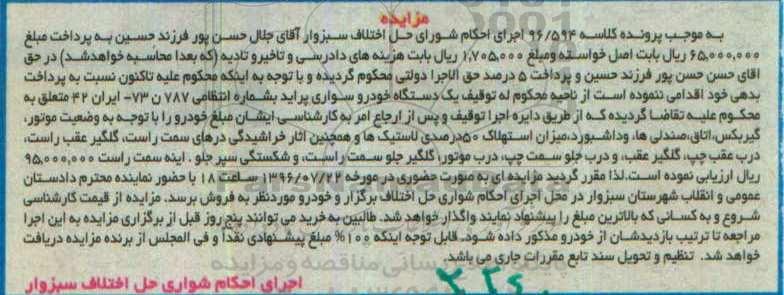 مزایده
به موجب پرونده کلاسه ۹۶/۵۹۴ اجرای احکام شورای حل اختلاف سبزوار آقای جلال حسن پور فرزند حسین به پرداخت مبلغ
۶۵,۰۰۰,۰۰۰ ریال بابت اصل خواسته ومبلغ ۱,۷۰۵,۰۰۰ ریال بابت هزینه های دادرسی و تاخیرو تادیه (که بعدا محاسبه خواهدشد) در حق
اقای حسن حسن پور فرزند حسین و پرداخت ۵ درصد حق الاجرا دولتی محکوم گردیده و با توجه به اینکه محکوم علیه تاکنون نسبت به پرداخت
بدهی خود اقدامی ننموده است از ناحیه محکوم له توقیف یک دستگاه خودرو سواری پراید بشماره انتظامی ۷۸۷ ن ۷۳- ایران ۴۲ متعلق به
محکوم علیه تقاضا گردیده که از طریق دایره اجرا توقیف و پس از ارجاع امر به کارشناسی ایشان مبلغ خودرو را با توجه به وضعیت موتور،
گیربکس،اتاق،صندلی ها، وداشبورد،میزان استهلاک ۵۰درصدی لاستیک ها و همچنین اثار خراشیدگی درهای سمت راست، گلگیر عقب راست،
درب عقب چپ، گلگیر عقب، و درب جلو سمت چپ، درب موتور، گلگیر جلو سمت راست، و شکستگی سپر جلو . اینه سمت راست ۹۵,۰۰۰,۰۰۰
ریال ارزیابی نموده است.لذا مقرر گردید مزایده ای به صورت حضوری در مورخه ۱۳۹۶/۰۷/۲۲ ساعت ۱۸ با حضور نماینده محترم دادستان
عمومی و انقلاب شهرستان سبزوار در محل اجرای احکام شواری حل اختلاف برگزار و خودرو موردنظر به فروش برسد. مزایده از قیمت کارشناسی
شروع و به کسانی که بالاترین مبلغ را پیشنهاد نمایند واگذار خواهد شد. طالبین به خرید می توانند پنج روز قبل از برگزاری مزایده به این اجرا
مراجعه تا ترتیب بازدیدشان از خودرو مذکور داده شود. قابل توجه اینکه ۱۰۰% مبلغ پیشنهادی نقدا و فی المجلس از برنده مزایده دریافت
خواهد شد. تنظیم و تحویل سند تابع مقررات جاری می باشد
اجرای احکام شواری حل اختلاف سبزوار